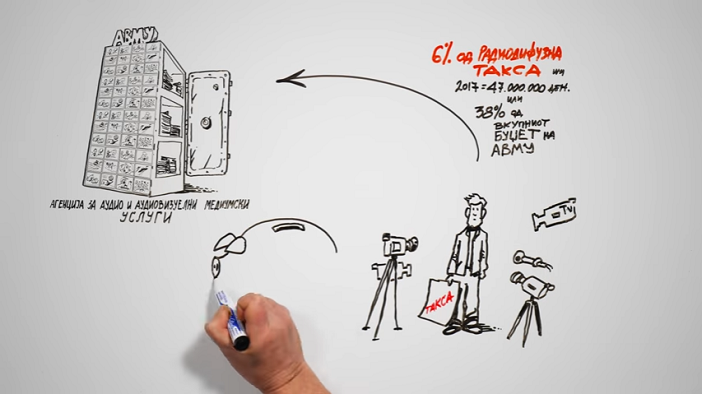 АВМУ
6% од РАДИОДИФУЗНА
ТАКСА или
2017 = 47.000.000 ДЕН.
или
38% од
ВКУПНИОТ
БУЏЕТ НА
АВМУ
АГЕНЦИЈА ЗА АУДИО И АУДИОВИЗУЕЛНИ МЕДИУМСКИ
УСЛУГИ
TV
ТАКСА